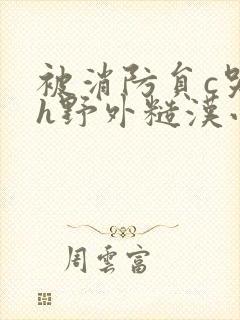 被消防员c哭
h野外糙漢
周雲富